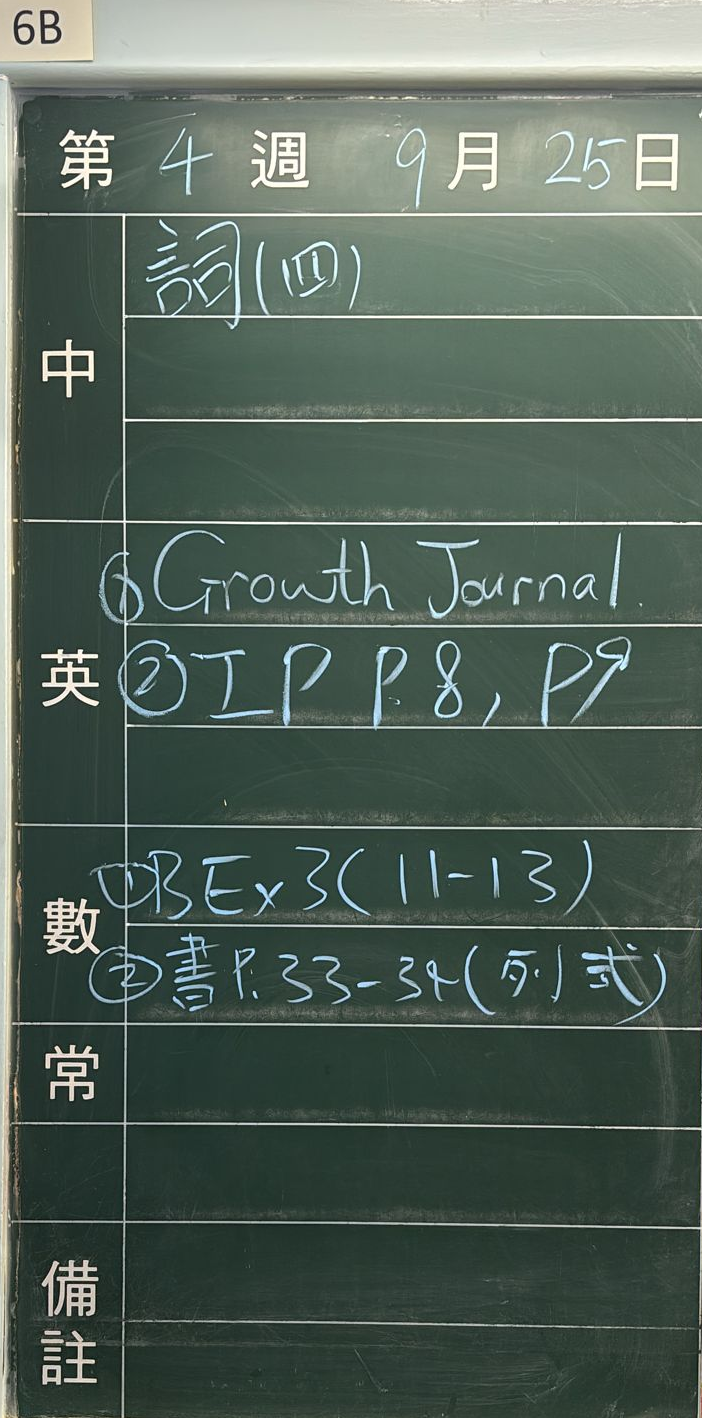 6B
第 4 週 9 月 25 日
中
詞(四)
英
① Growth Journal.
② I P P.8, P9
數
① B Ex 3(11-13)
② 書 P.33-34(列式)
常
備註